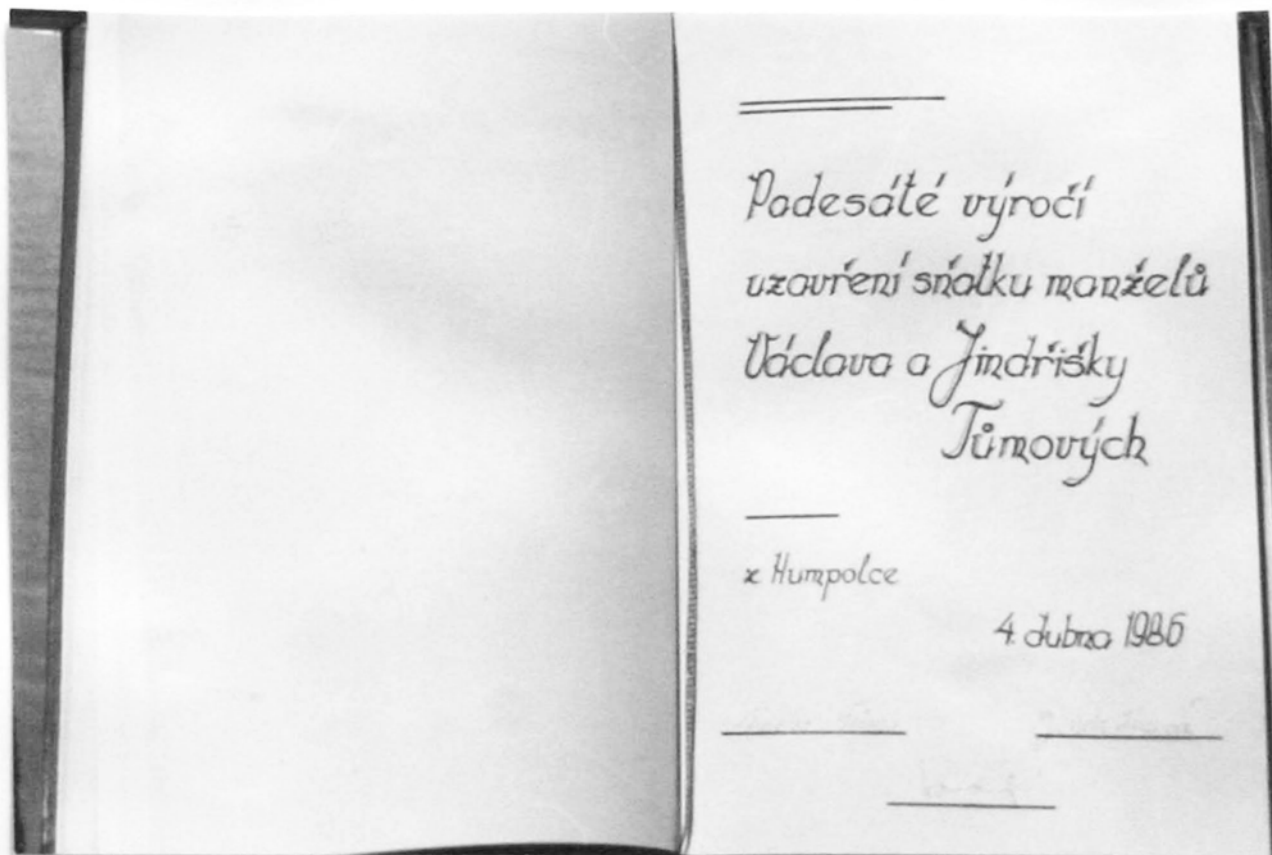 Padesáté výročí
uzavření sňatku manželů
Václava a Jindřišky
Tůmových
z Humpolce
4. dubna 1986